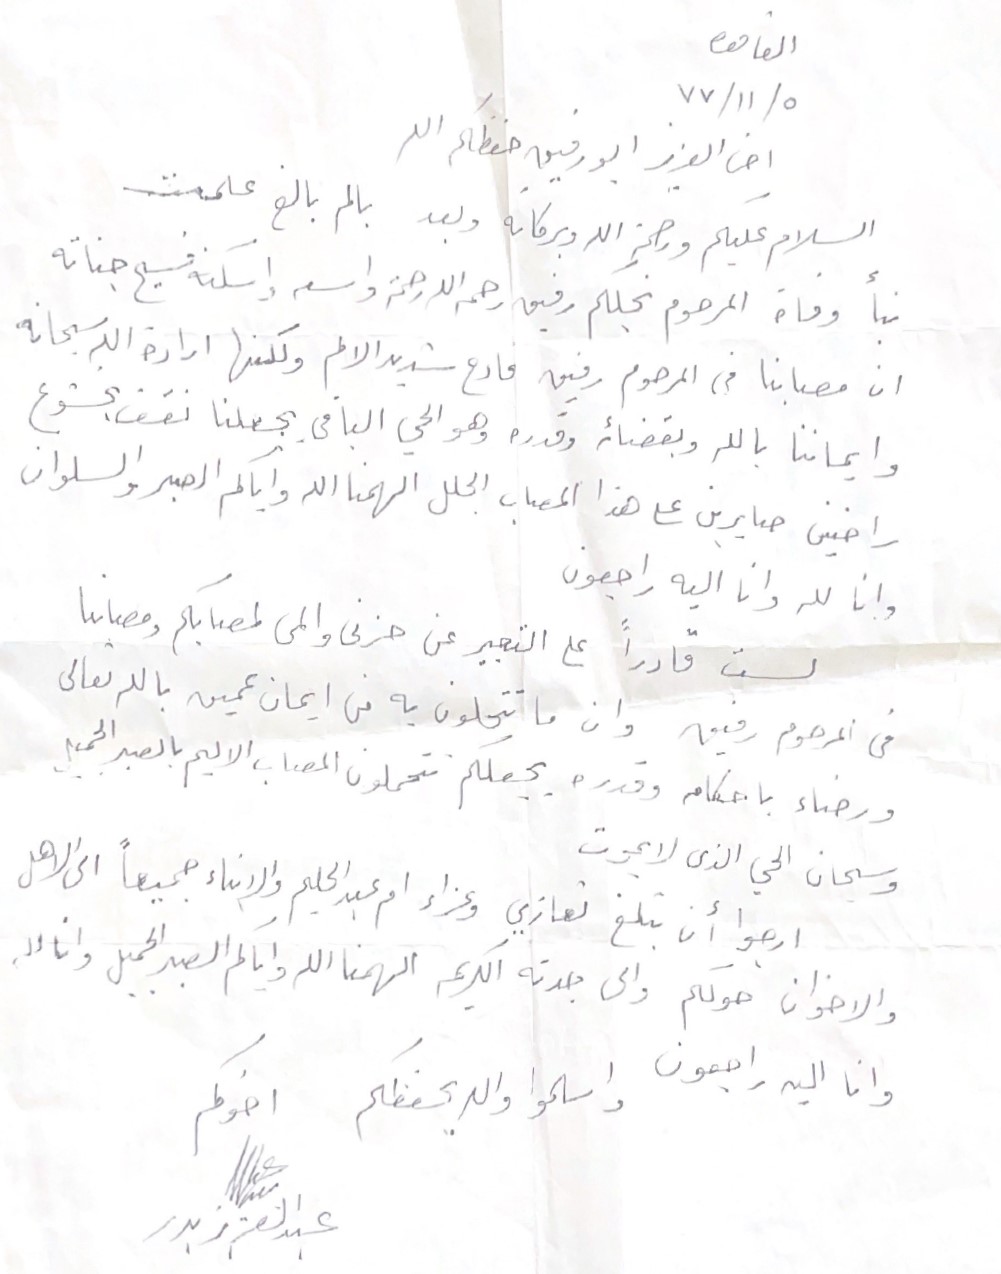 القاهرة
٥/١١/٧٧
اخي العزيز ابو رفيق حفظكم الله
السلام عليكم ورحمة الله وبركاته وبعد بالم بالغ علمت
نبأ وفاة المرحوم نجلكم رفيق رحمه الله رحمة واسعه واسكنه فسيح جناته
ان مصابنا في المرحوم رفيق فادح شديد الالم ولكنها ارادة الله سبحانه
وايماننا بالله وبقضائه وقدره وهو الحي الباقي يجعلنا نقف بخشوع
راضين صابرين على هذا المصاب الجلل الهمنا الله واياكم الصبر والسلوان
وانا لله وانا اليه راجعون
لست قادراً على التعبير عن حزني والمي لمصابكم ومصابنا
في المرحوم رفيق وان ما تتحلون به من ايمان عميق بالله تعالى
ورضاء باحكامه وقدره يجعلكم تتحملون المصاب الاليم بالصبر الجميل
وسبحان الحي الذي لا يموت
ارجوا أن تبلغ تعازي وعزاء ام عبد الحليم والابناء جميعاً الى الاهل
والاخوان حولكم والى جدته الكريمه الهمنا الله واياكم الصبر الجميل وانا لله
وانا اليه راجعون واسلموا والله يحفظكم اخوكم
عبد العزيز بدر